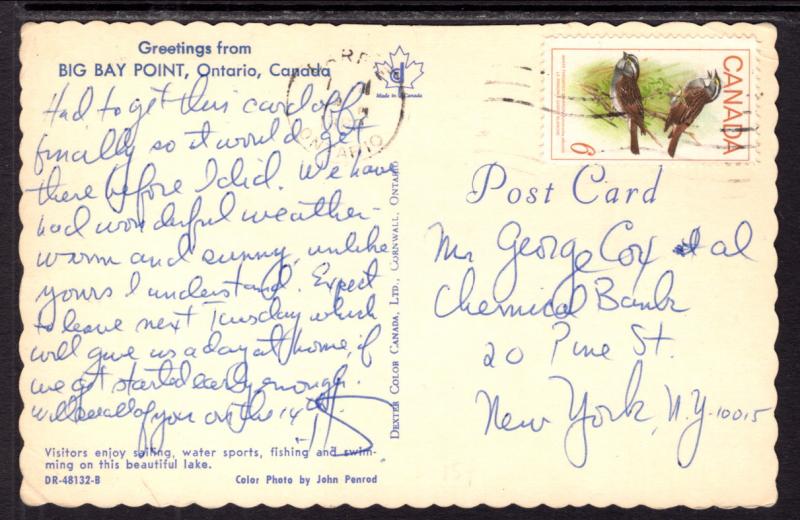 Greetings from
BIG BAY POINT, Ontario, Canada
Had to get this card off
finally so it would get
there before I did. We have
had wonderful weather-
warm and sunny, unlike
yours I understand. Expect
to leave next Tuesday which
will give us a day at home, if
we get started early enough.
Will see all of you on the 14th.
Visitors enjoy sailing, water sports, fishing and swim-
ming on this beautiful lake.
DR-48132-B
Color Photo by John Penrod
Made in Canada
DEXTER COLOR CANADA, LTD., CORNWALL, ONTARIO
ONTARIO
CANADA
6
Post Card
Mr George Cox et al
Chemical Bank
20 Pine St.
New York, N.Y. 10015